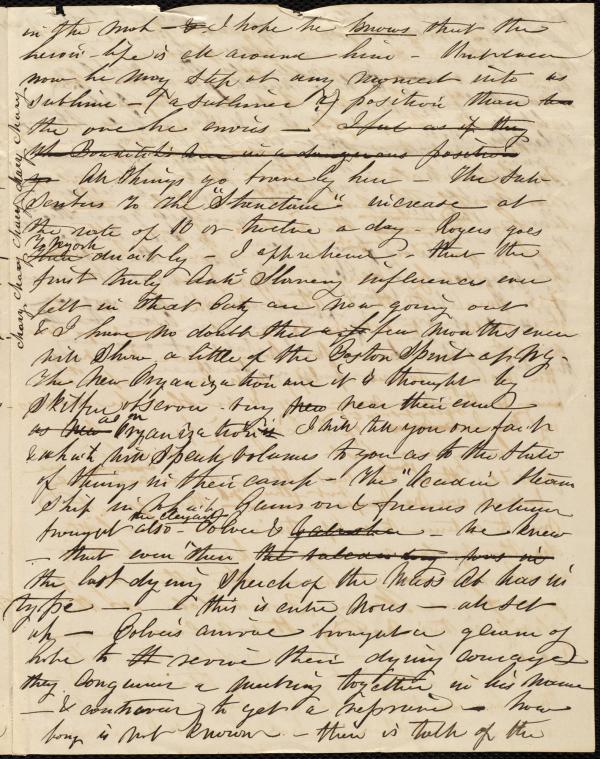 in the mob - & I hope he knows that the
heroic life is all around him -
now he may step at any moment into as
sublime - (a sublimer?) position than
the one he envies - I feel as if they
in a dangerous position
All things go bravely here - The Sub-
scribers to the "Standard" increase at
the rate of 10 or twelve a day - Rogers goes
to N York
ducibly - I apprehend - that the
first truly Anti Slavery influences ever
felt in that City are now going out
& I have no doubt that a few months even
will show a little of the Boston Spirit of N.Y.
The New Organization are it is thought by
skilful observers very near their end
as an Organization I will tell you one fact
& which will speak volumes to you as to the state
of things in their camp - The "Acadia" steam
ship in which Garrison & friends return
brought also - Colver & - We knew
- that even then
the last dying speech of the Mass Ab was in
type - this is entre nous - all set
up - Colver's arrival brought a gleam of
hope to revive their dying courage
they conquer a meeting together in his name
- & contrive to get a reprieve - how
long is not known - there is talk of the
chary, chary chary, chary, chary